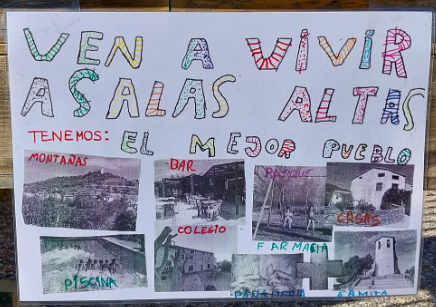 VEN A VIVIR
A SALAS ALTAS
TENEMOS: EL MEJOR PUEBLO
MONTAÑAS
BAR
PARQUE
CASAS
PISCINA
COLEGIO
FARMACIA
PANADERIA
ERMITA